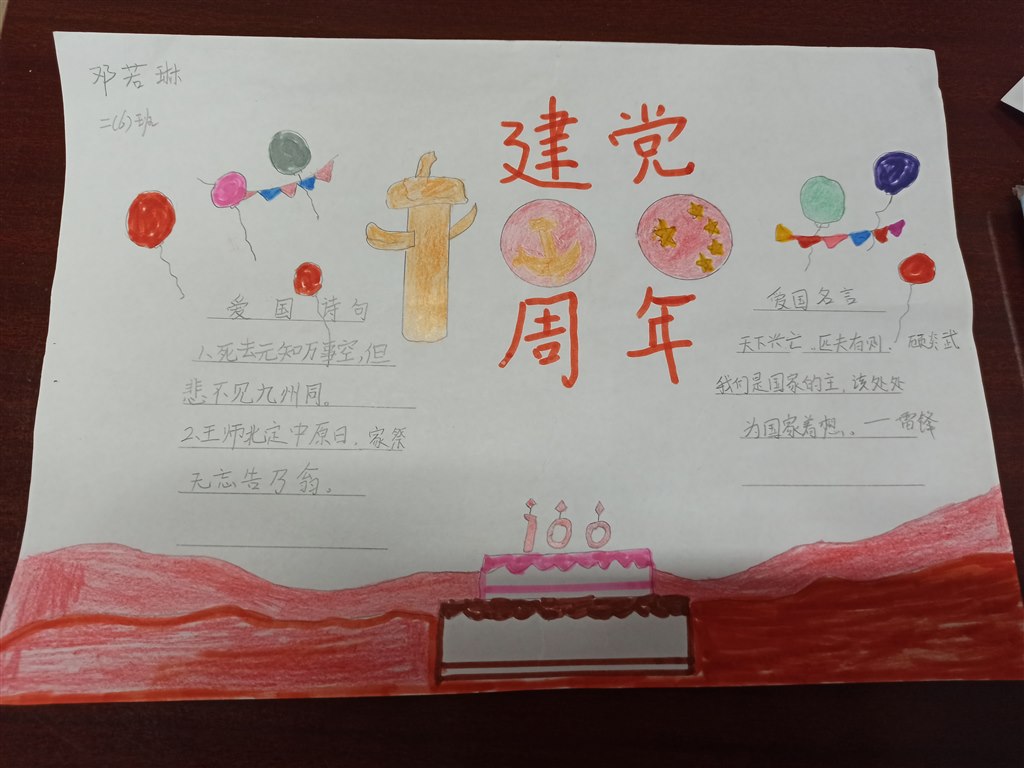 邓若琳
二(6)班
建党
周年
爱国诗句
1、死去元知万事空,但
悲不见九州同。
2、王师北定中原日,家祭
无忘告乃翁。
爱国名言
天下兴亡,匹夫有则. 顾炎武
我们是国家的主,该处处
为国家着想。—雷锋
100